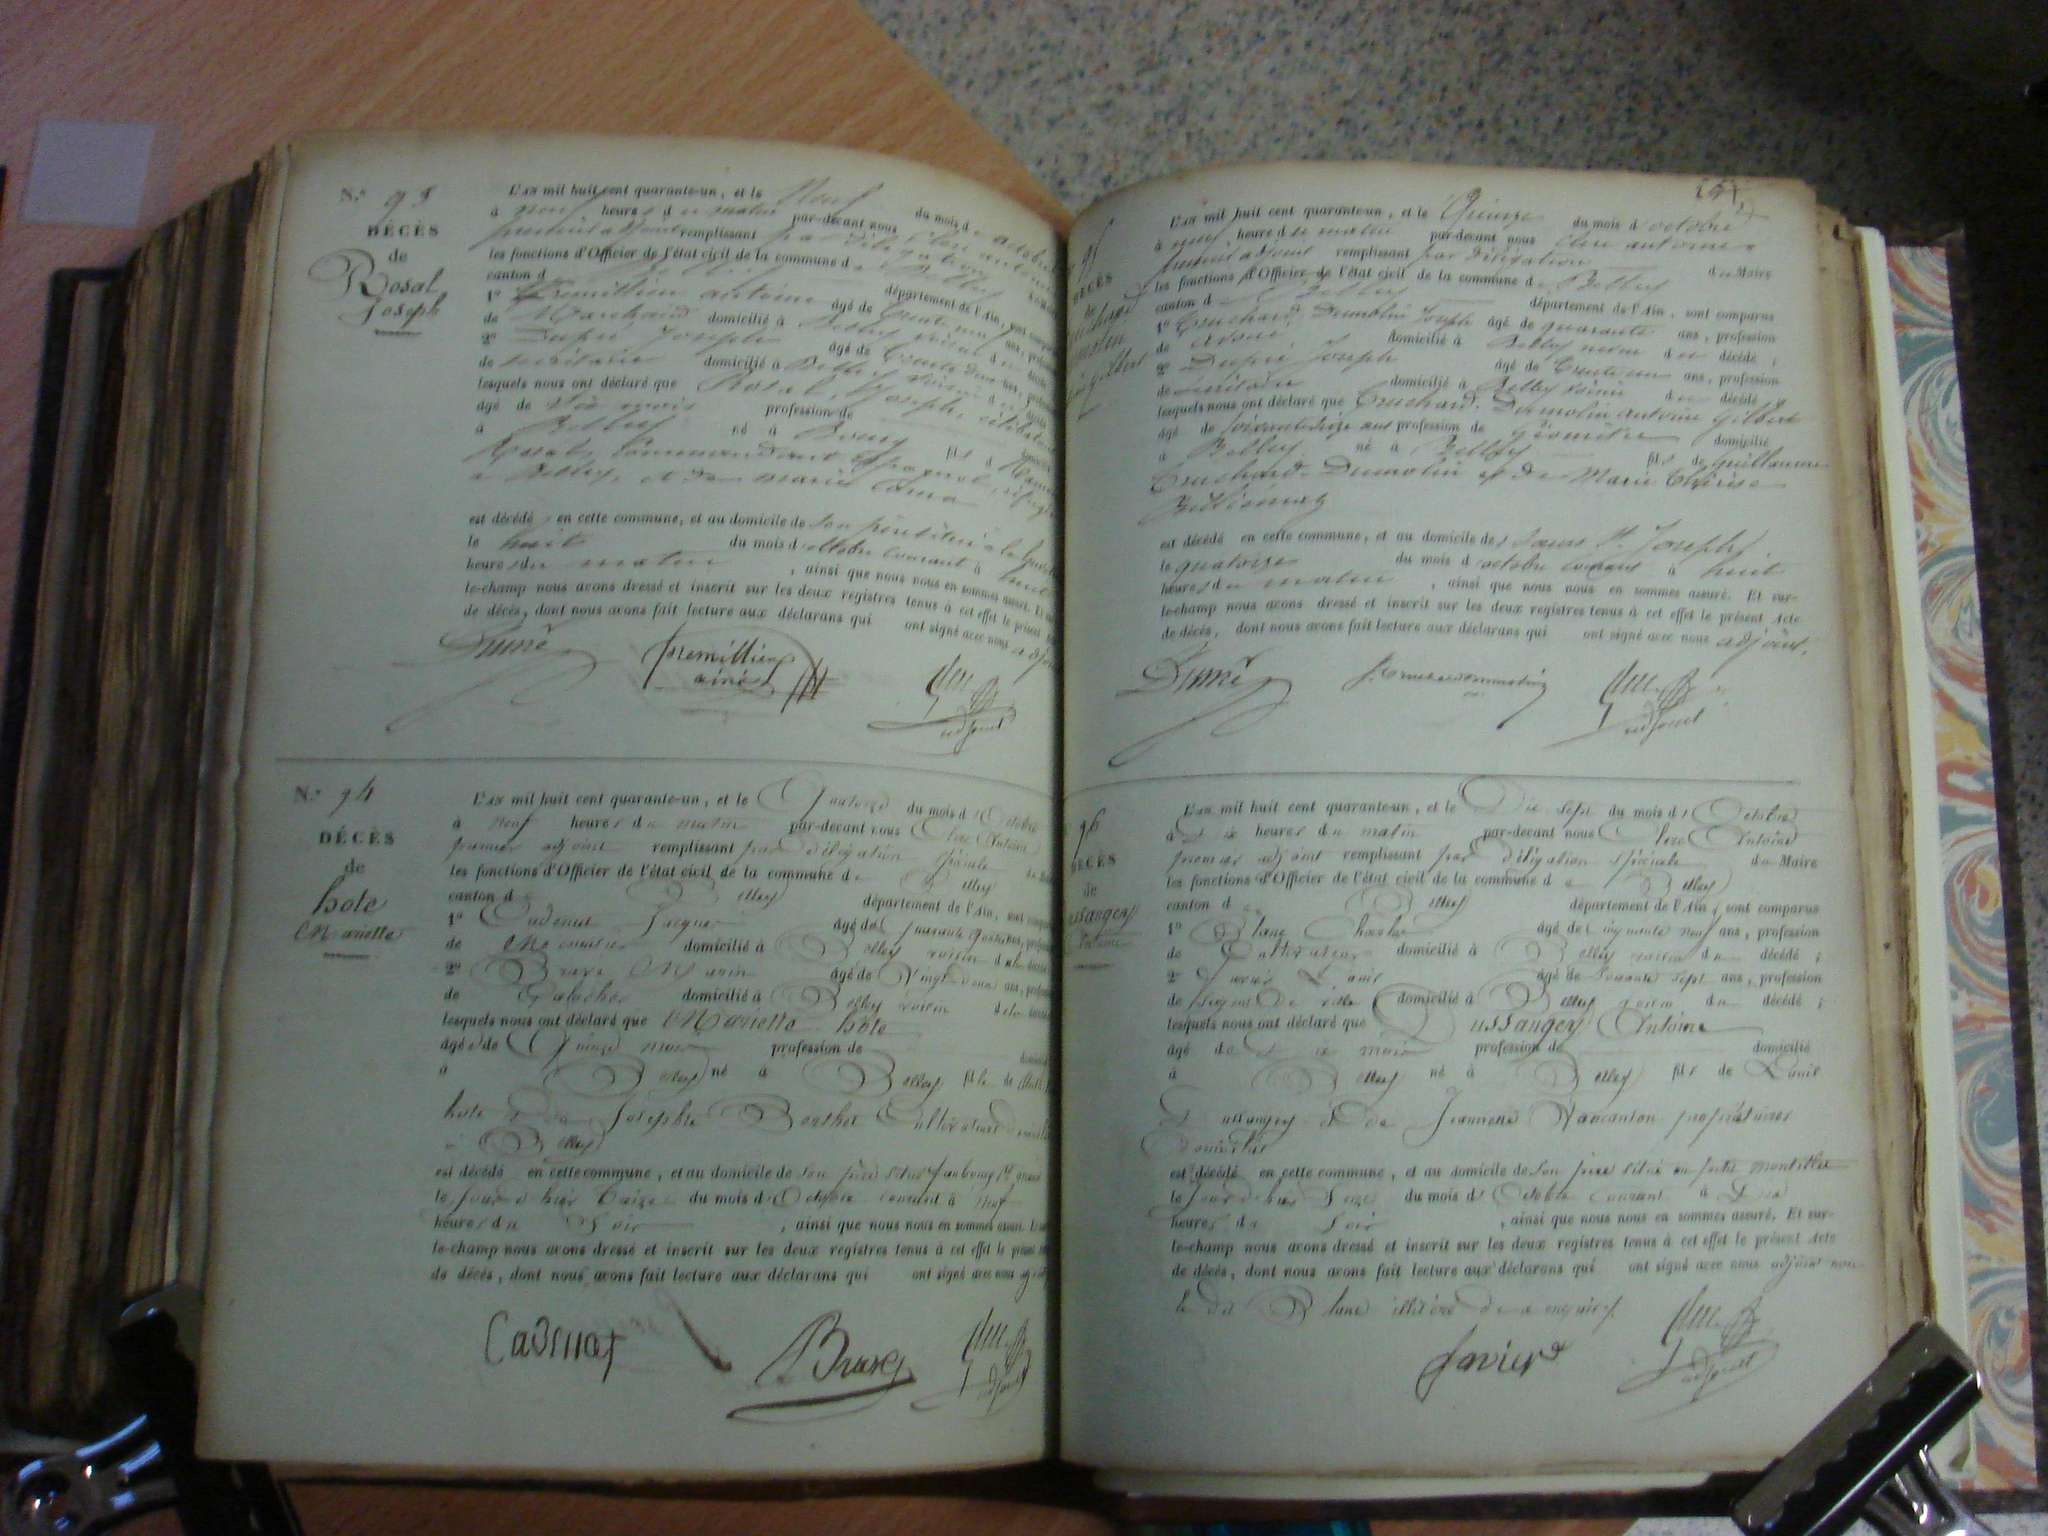 N.° 93
DÉCÈS
de
Rosal
Joseph
L'an mil huit cent quarante-un, et le Neuf du mois d'octobre
à neuf heures du matin par-devant nous Clerc antoine
premier adjoint remplissant par délégation
les fonctions d'Officier de l'état civil de la commune de Belley
canton de Belley département de l'Ain, sont comparus
1° Premillieu antoine âgé de trente ans, profession
de Marchand domicilié à Belley voisin du décédé
2° Dupré Joseph âgé de trente deux ans, profession
de secrétaire domicilié à Belley voisin
lesquels nous ont déclaré que Rosal, Joseph, célibataire
âgé de dix mois profession de
à Belley né à Bourg fils de
Rosal, Commandant Espagnol, réfugié
à Belley, et de marie
est décédé en cette commune, et au domicile de son père situé à
le huit du mois d'octobre courant à huit
heures du matin , ainsi que nous nous en sommes assuré. Et sur-
le-champ nous avons dressé et inscrit sur les deux registres tenus à cet effet le présent
de décès, dont nous avons fait lecture aux déclarans qui ont signé avec nous adjoint
Dupré premillieu
ainé
adjoint
N.° 94
DÉCÈS
de
hote
Mariette
L'an mil huit cent quarante-un, et le Quatorze du mois d'Octobre
à neuf heures du matin par-devant nous Clerc Antoine
premier adjoint remplissant par délégation spéciale
les fonctions d'Officier de l'état civil de la commune de Belley
canton de Belley département de l'Ain, sont comparus
1° Cadenat Jacques âgé de quarante ans, profession
de Menuisier domicilié à Belley voisin
2° Marin âgé de Vingt deux ans, profession
de domicilié à Belley voisin
lesquels nous ont déclaré que Mariette hote
âgée de Quinze mois profession de
à Belley né à Belley fille de
hote et de Josephte Berthet Cultivateurs
à Belley
est décédé en cette commune, et au domicile de son père situé faubourg
le jour d'hier treize du mois d'Octobre courant à neuf
heures du Soir , ainsi que nous nous en sommes assuré. Et
le-champ nous avons dressé et inscrit sur les deux registres tenus à cet effet le présent
de décès, dont nous avons fait lecture aux déclarans qui ont signé avec nous
adjoint
141
95
DÉCÈS
L'an mil huit cent quarante-un, et le Quinze du mois d'octobre
à neuf heures du matin par-devant nous Clerc antoine
premier adjoint remplissant par délégation du Maire
les fonctions d'Officier de l'état civil de la commune de Belley
canton de Belley département de l'Ain, sont comparus
1° Truchard Dumolin Joseph âgé de quarante ans, profession
de Avoué domicilié à Belley neveu du décédé ;
2° Dupré Joseph âgé de trente ans, profession
de secrétaire domicilié à Belley voisin du décédé
lesquels nous ont déclaré que Truchard-Dumolin antoine Gilbert
âgé de soixante dix ans profession de géomètre domicilié
à Belley né à Belley fils de Guillaume
Truchard-Dumolin et de Marie Thérèse
est décédé en cette commune, et au domicile des Sœurs St. Joseph
le quatorze du mois d'octobre courant à huit
heures du matin , ainsi que nous nous en sommes assuré. Et sur-
le-champ nous avons dressé et inscrit sur les deux registres tenus à cet effet le présent Acte
de décès, dont nous avons fait lecture aux déclarans qui ont signé avec nous adjoint.
Dupré
adjoint
96
DÉCÈS
de
ussangey
Antoine
L'an mil huit cent quarante-un, et le Dix sept du mois d'Octobre
à dix heures du matin par-devant nous Clerc Antoine
premier adjoint remplissant par délégation spéciale du Maire
les fonctions d'Officier de l'état civil de la commune de Belley
canton de Belley département de l'Ain, sont comparus
1° Blanc Charles âgé de cinquante neuf ans, profession
de Cultivateur domicilié à Belley voisin du décédé ;
2° Javier Louis âgé de soixante sept ans, profession
de sergent de ville domicilié à Belley voisin du décédé ;
lesquels nous ont déclaré que Dussangey Antoine
âgé de dix mois profession de domicilié
à Belley né à Belley fils de Louis
Dussangey et de Jeannette Vaucanson propriétaires
domiciliés
est décédé en cette commune, et au domicile de son père situé
le jour d'hier Seize du mois d'Octobre courant à dix
heures du soir , ainsi que nous nous en sommes assuré. Et sur-
le-champ nous avons dressé et inscrit sur les deux registres tenus à cet effet le présent Acte
de décès, dont nous avons fait lecture aux déclarans qui ont signé avec nous adjoint non
le dit Blanc illitéré de ce enquis.
Javier
adjoint